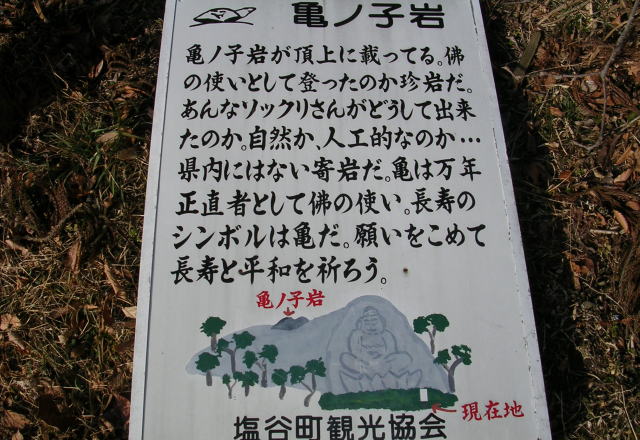 亀ノ子岩
亀ノ子岩が頂上に載ってる。佛
の使いとして登ったのか珍岩だ。
あんなソックリさんがどうして出来
たのか。自然か、人工的なのか…
県内にはない寄岩だ。亀は万年
正直者として佛の使い。長寿の
シンボルは亀だ。願いをこめて
長寿と平和を祈ろう。
亀ノ子岩
現在地
塩谷町観光協会